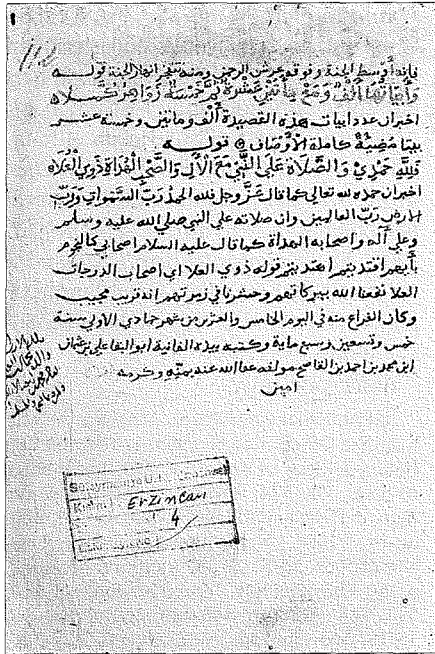 فإنه أوسط الجنة وفوقه عرش الرحمن ومنه تفجر أنهار الجنة قوله
وأبياتها ألف ومع مأتين عشرة زد خمسة زواهر كملا
اخبر ان عدد ابيات هذه القصيدة ألف ومأتين وخمسة عشر
بيتا مضيئة كاملة الأوصاف قوله
فلله حمدي والصلاة علي النبي مع الآل والصحب الهداة ذوي العلاه
اخبر ان حمده لله تعالي كما قال عز وجل فلله الحمد رب السموات ورب
الارض رب العالمين وان صلاته علي النبي صلي الله عليه وسلم
وعلي آله واصحابه الهداة كما قال عليه السلام اصحابي كالنجوم
بأيهم اقتديتم اهتديتم قوله ذوي العلا اي اصحاب الدرجات
العلا نفعنا الله ببركاتهم وحشرنا في زمرتهم انه قريب مجيب
وكان الفراغ منه في اليوم الخامس والعشرين من شهر جمادي الاولي سنة
خمس وتسعين وسبع ماية وكتبه بيده الفانية ابو البقا علي بن عثمان
ابن محمد بن احمد بن القاصح مولفه عفا الله عنه بمنه وكرمه
امين
Erzincan
4